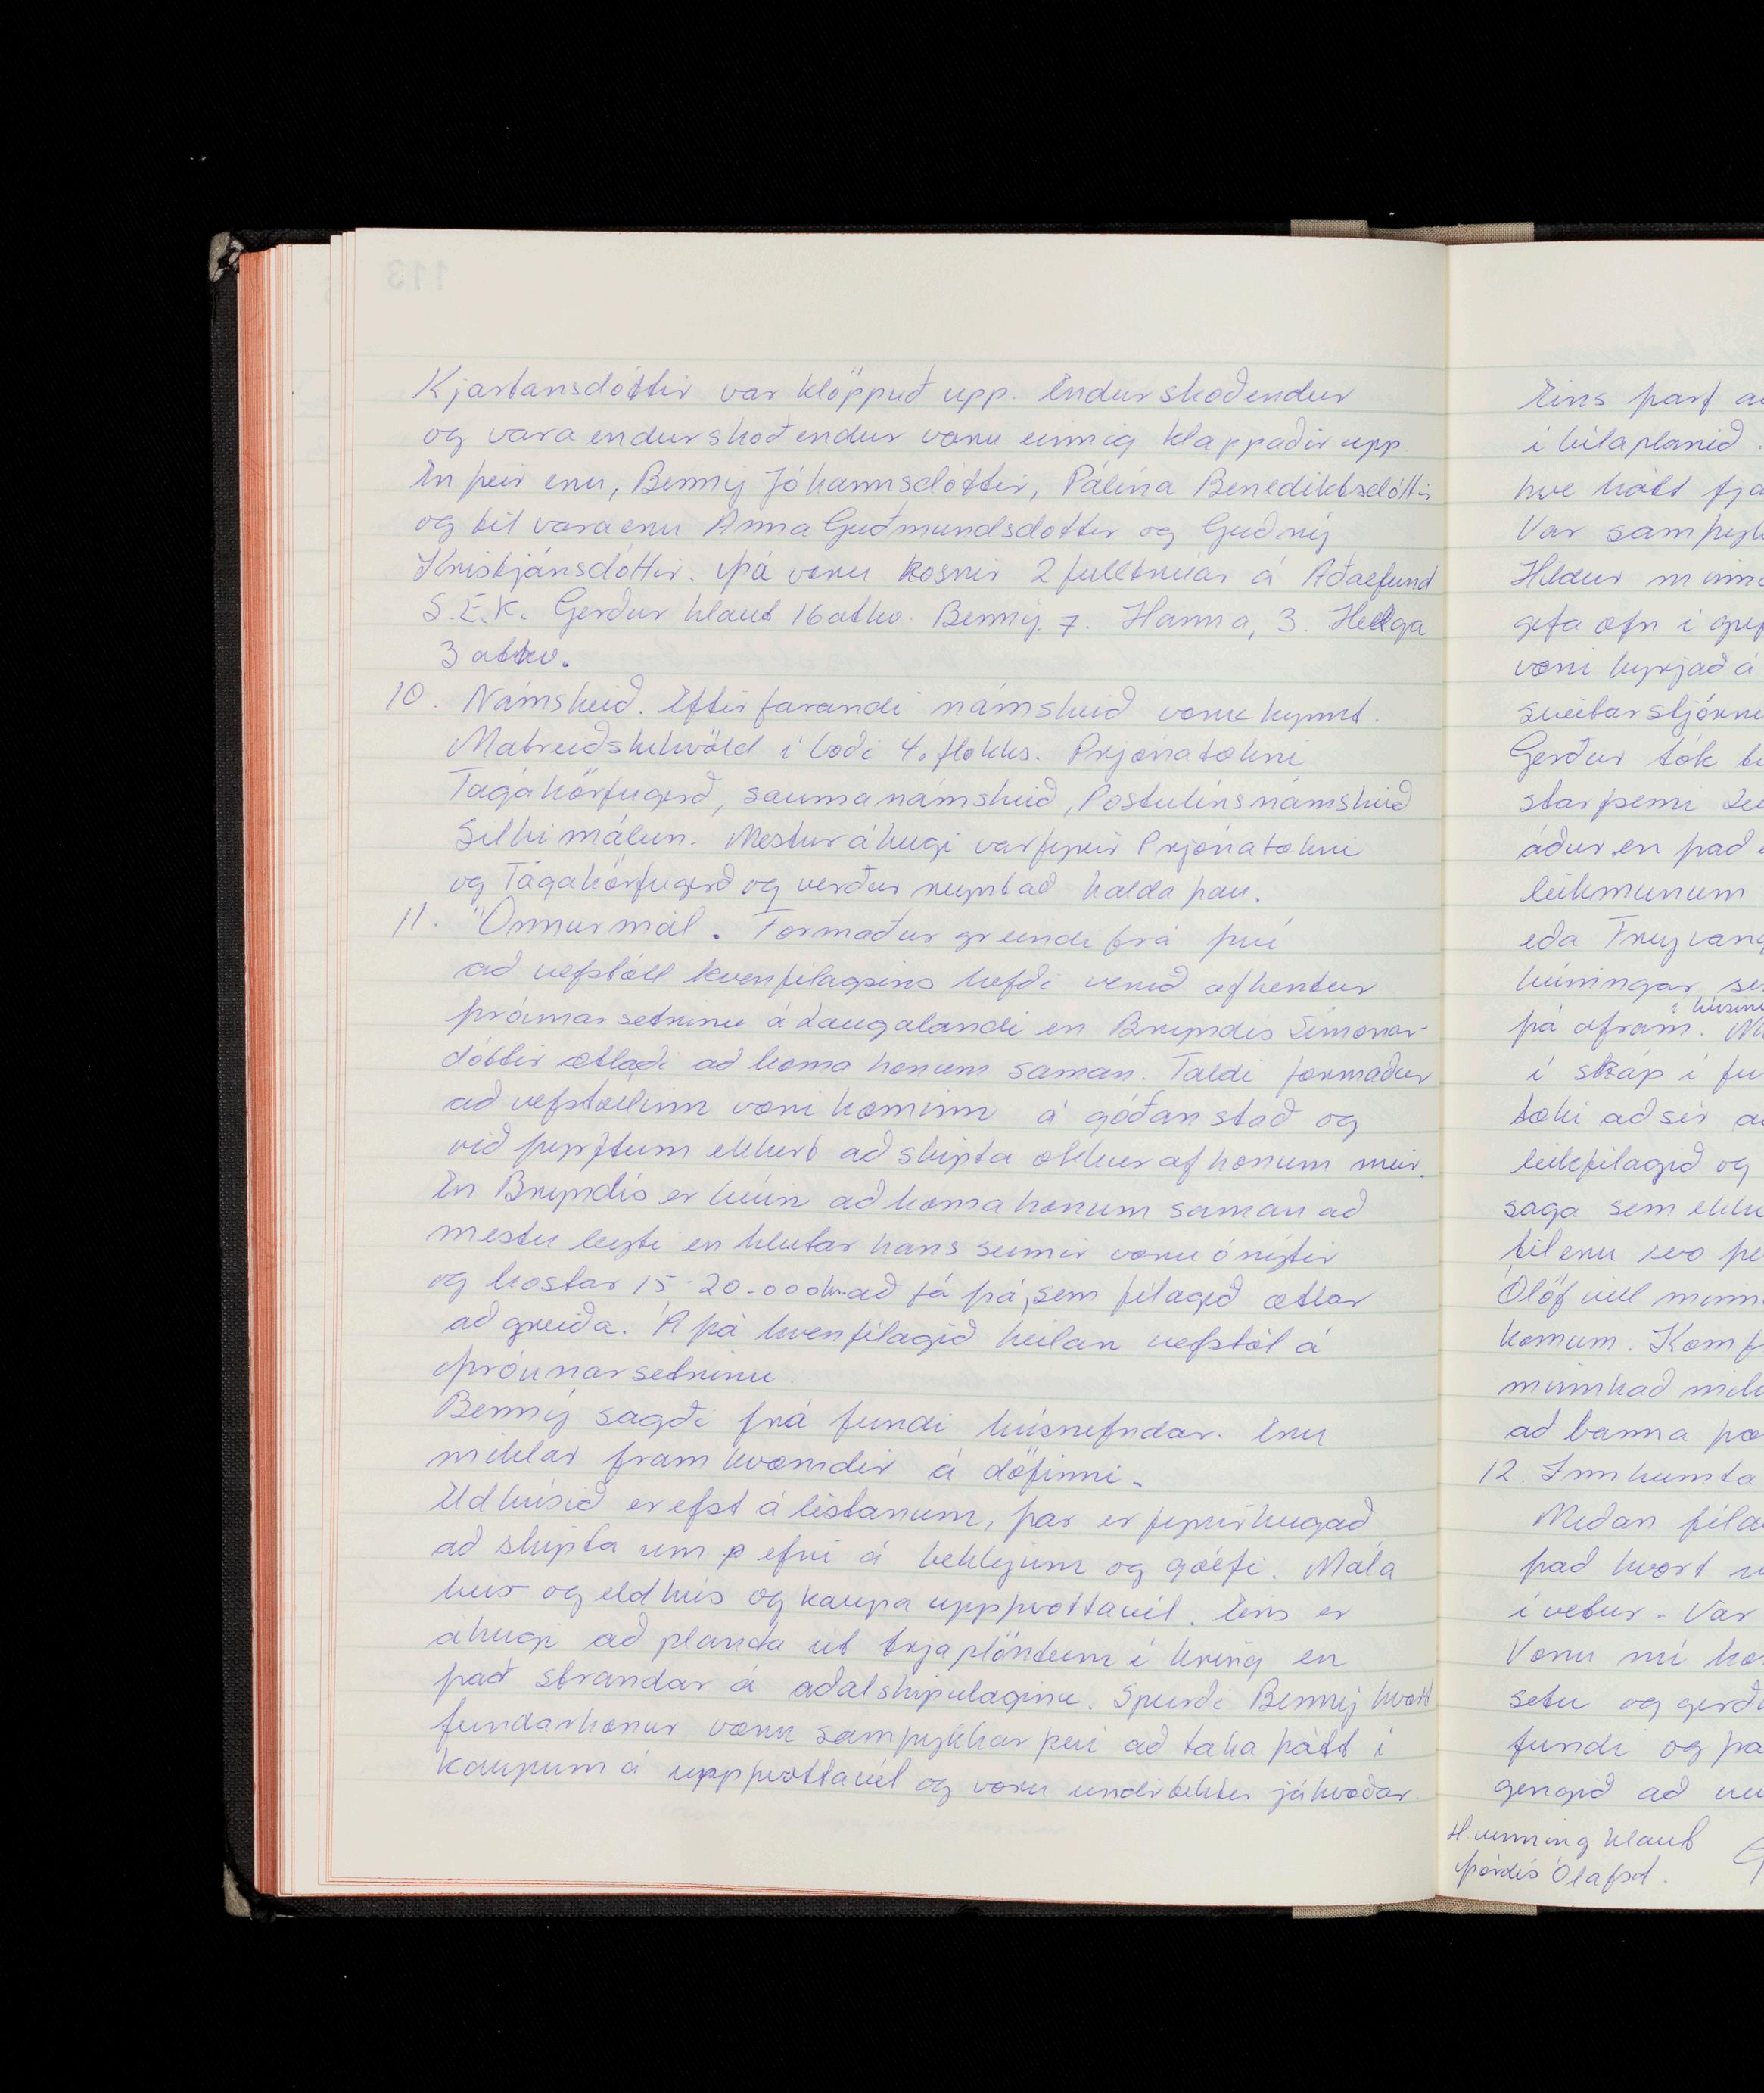 Kjartansdóttir var klöppuð upp. Endurskoðendur
og varaendurskoðendur voru einnig klappaðir upp.
En þeir eru, Benný Jóhannsdóttir, Pálína Benediktsdóttir
og til vara eru Anna Guðmundsdóttir og Guðný
Kristjánsdóttir. Þá voru kosnir 2 fulltrúar á Aðalfund
S.E.K. Gerður hlaut 16 atkv. Benný. 7. Hanna, 3. Helga
3 atkv.
10. Námskeið. Eftirfarandi námskeið voru kynnt.
Matreiðslukvöld í boði 4. flokks. Prjónatækni
Tágakörfugerð, saumanámskeið, Postulínsnámskeið
Silkimálun. Mestur áhugi var fyrir Prjónatækni
og Tágakörfugerð og verður reynt að halda þau.
11. Önnur mál. Formaður greindi frá því
að vefstóll kvenfélagsins hefði verið afhentur
þróunarsetrinu á Laugalandi en Bryndís Símonar-
dóttir ætlaði að koma honum saman. Taldi formaður
að vefstóllinn væri kominn á góðan stað og
við þyrftum ekkert að skipta okkur af honum meir.
En Bryndís er búin að koma honum saman að
mestu leyti en hlutar hans sumir voru ónýtir
og kostar 15-20.000 kr að fá þá, sem félagið ætlar
að greiða. Á þá kvenfélagið heilan vefstól á
Þróunarsetrinu.
Benný sagði frá fundi húsnefndar. Eru
miklar framkvæmdir á döfinni.
Eldhúsið er efst á listanum, þar er fyrirhugað
að skipta um efni á bekkjum og gólfi. Mála
hús og eldhús og kaupa uppþvottavél. Eins er
áhugi að planta út trjáplöntum í kring en
það strandar á aðalskipulaginu. Spurði Benný hvort
fundarkonur væru samþykkar því að taka þátt í
kaupum á uppþvottavél og voru undirtektir jákvæðar.
Eins þarf
í bílaplanið.
hve hátt
Var
Hildur
gefa öfn í
væri byrjað á
sveitarstjórn
Gerður tók
starfsemi
áður en það
leikmunum
eða
búningar
í
þá áfram.
í skáp í
tæki að sér
leikfélagið og
saga sem
til eru svo
Ólöf vill
komum.
minnkað
að banna
12. Innheimta
Meðan
það hvort
í vetur. Var
Voru nú
setu og
fundi og
gengið að
H. vinning hlaut
Þórdís Ólafsd.